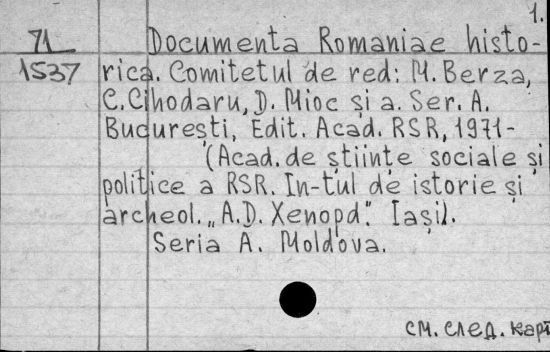 1.
71 Documenta Romaniae histo-
1537 rica. Comitetul de red: M. Berza,
C. Cihodaru, D. Mioc și a. Ser. A.
București, Edit. Acad. RSR, 1971-
(Acad. de științe sociale și
politice a RSR. In-tul de istorie și
archeol. „A.D. Xenopd." Iași).
Seria A. Moldova.
см. след. карт